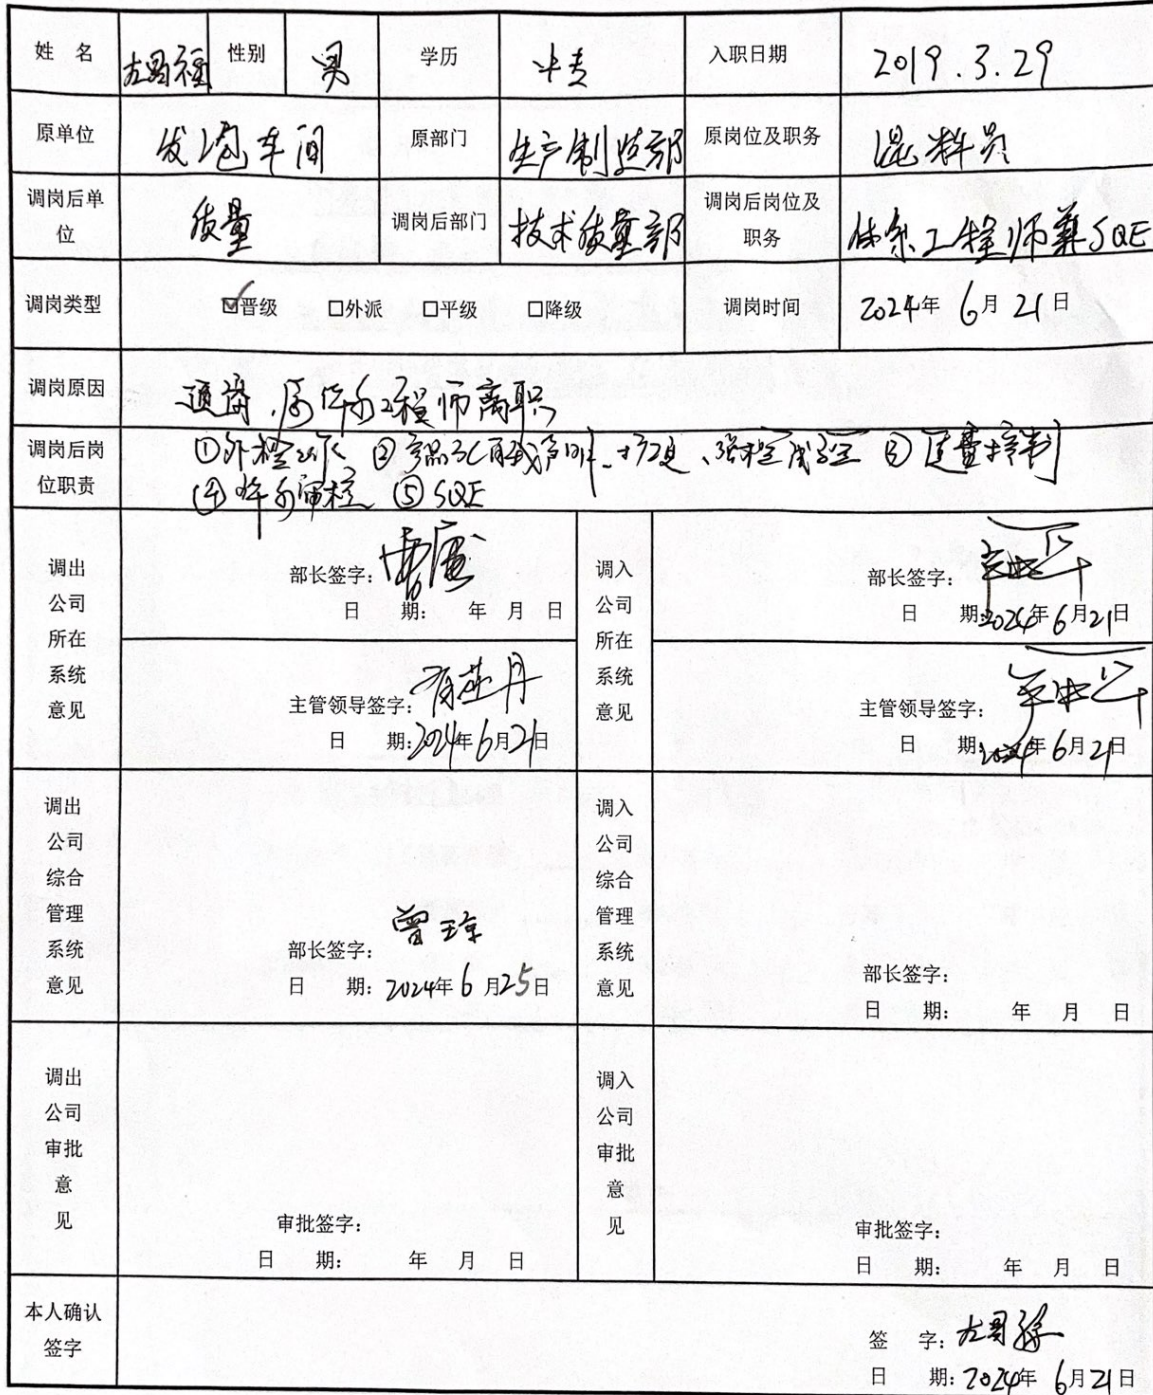 姓 名 性别 男 学历 中专 入职日期 2019.3.29
原单位 发泡车间 原部门 生产制造部 原岗位及职务 混料员
调岗后单位 质量 调岗后部门 技术质量部 调岗后岗位及职务 体系工程师兼SQE
调岗类型 ☑晋级 □外派 □平级 □降级 调岗时间 2024年 6月 21日
调岗原因 原体系工程师离职
调岗后岗位职责 ① ② ③ 质量控制
④ 体系审核 ⑤ SQE
调出公司所在系统意见
部长签字:
日 期: 年 月 日
主管领导签字:
日 期:2024年6月21日
调入公司所在系统意见
部长签字:
日 期:2024年6月21日
主管领导签字:
日 期:2024年6月21日
调出公司综合管理系统意见
部长签字: 曾琼
日 期:2024年6月25日
调入公司综合管理系统意见
部长签字:
日 期: 年 月 日
调出公司审批意见
审批签字:
日 期: 年 月 日
调入公司审批意见
审批签字:
日 期: 年 月 日
本人确认签字
签 字:
日 期:2024年6月21日